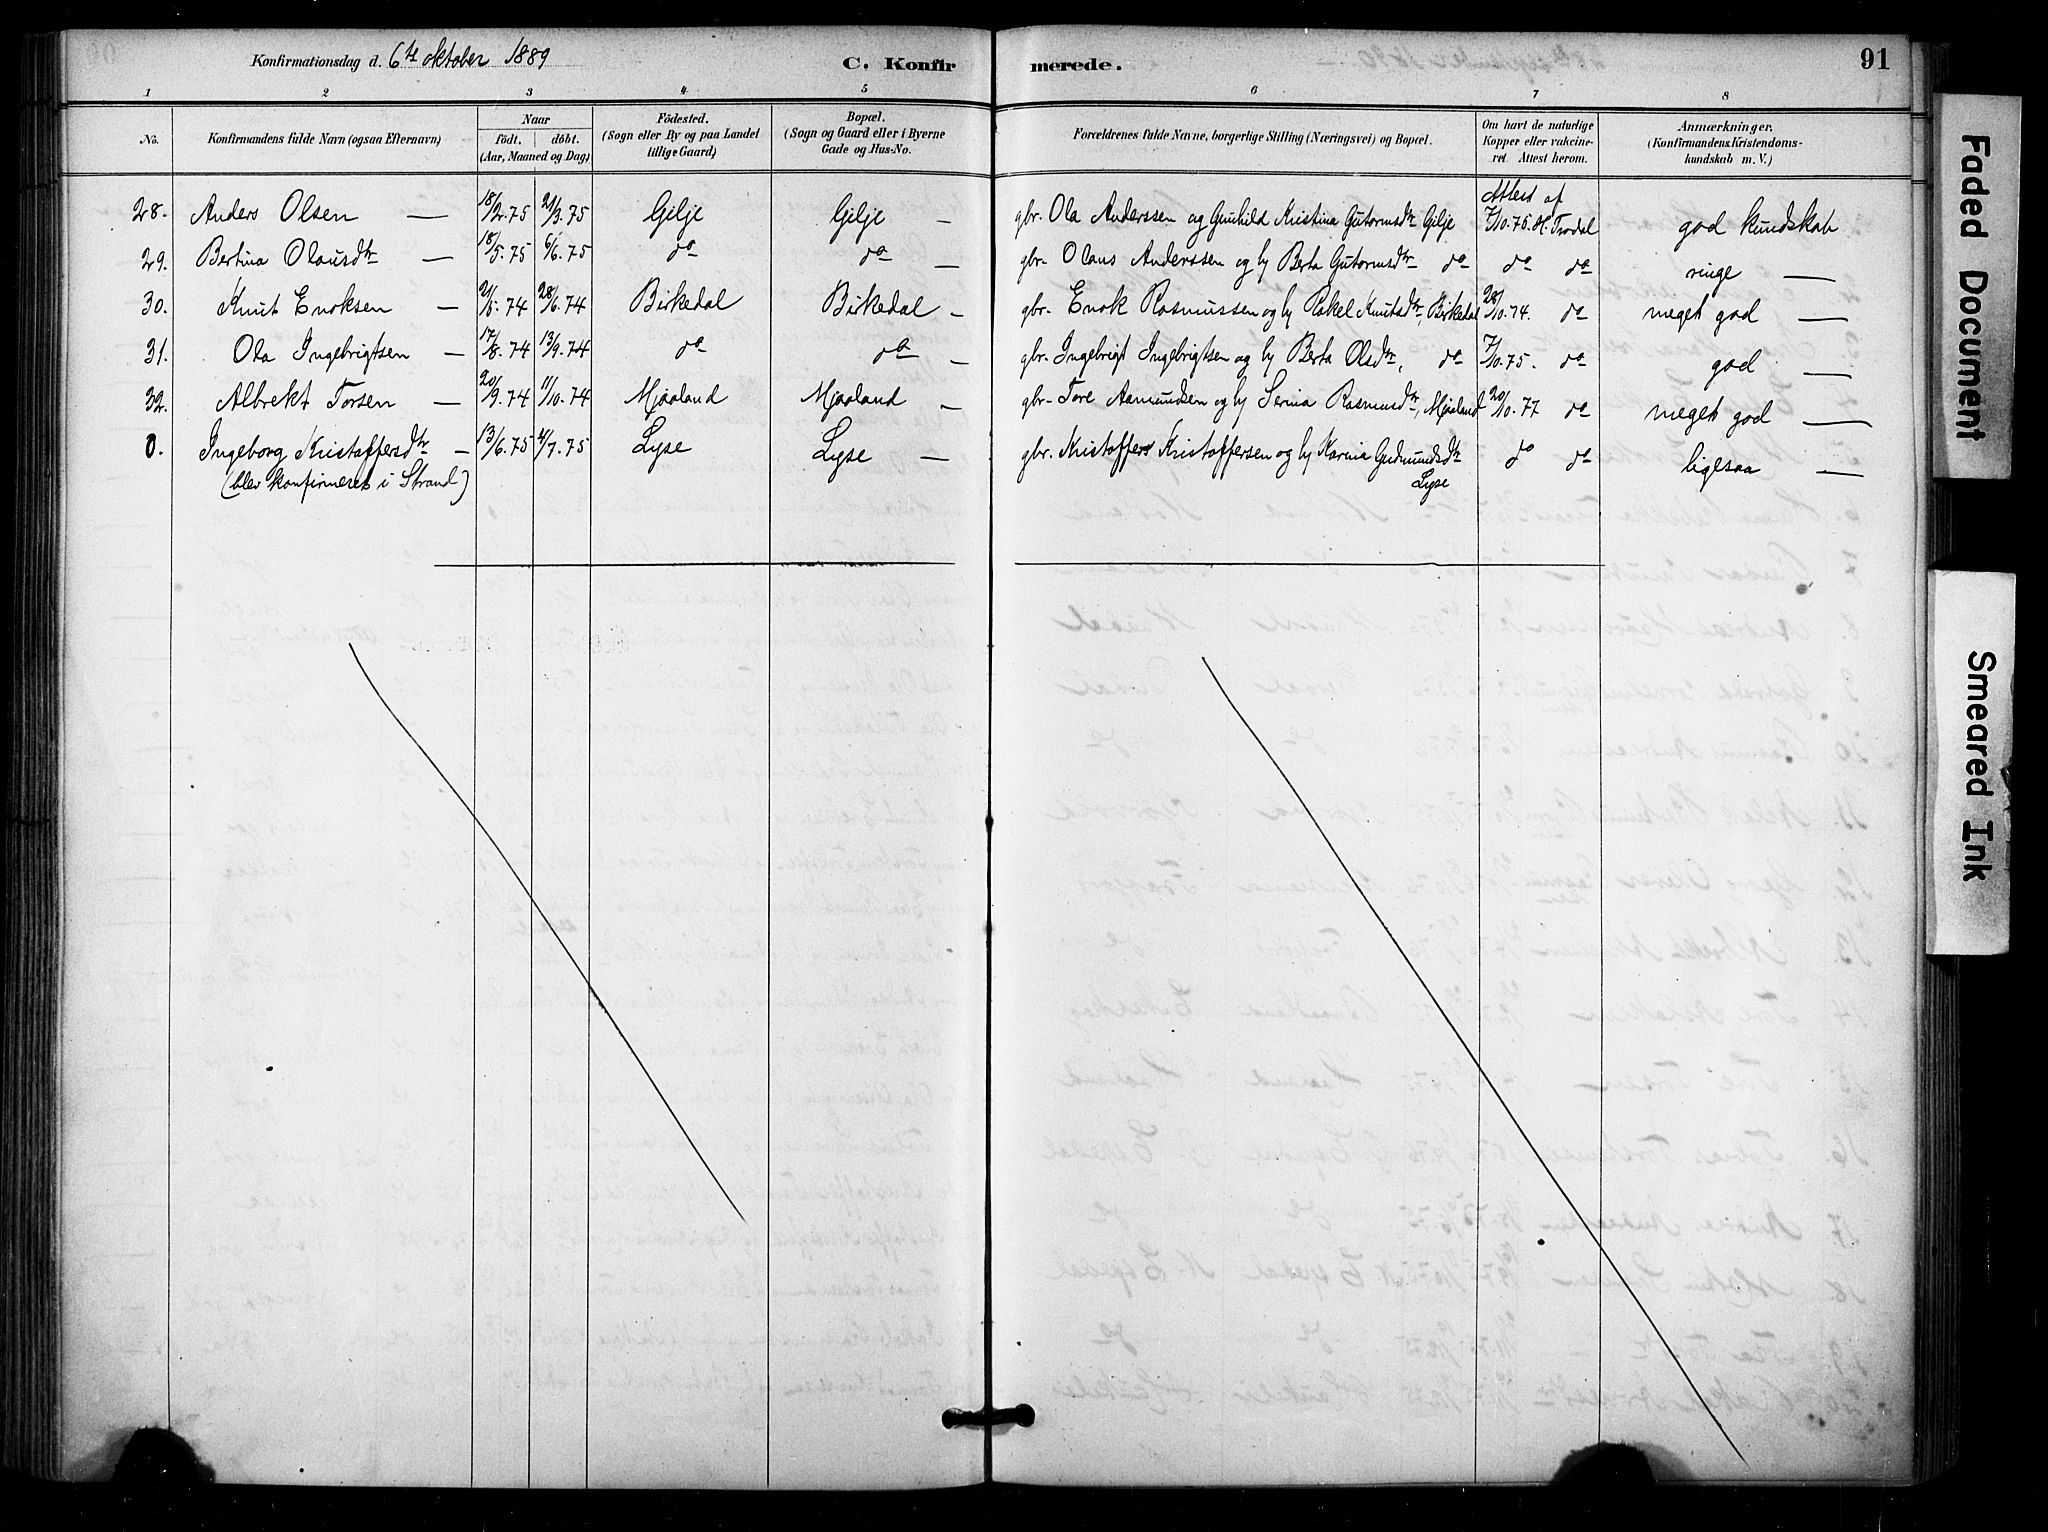 Konfirmationsdag d. 6te oktober 1889
C. Konfirmerede.
91
1 2 3 4 5 6 7 8
No.
Konfirmandens fulde Navn (ogsaa Efternavn)
Naar
födt. döbt.
(Aar, Maaned og Dag)
Födested.
(Sogn eller By og paa Landet
tillige Gaard)
Bopæl.
(Sogn og Gaard eller i Byerne
Gade og Hus-No.
Forældrenes fulde Navne, borgerlige Stilling (Næringsvei) og Bopæl.
Om havt de naturlige
Kopper eller vakcine-
ret. Attest herom.
Anmærkninger.
(Konfirmandens Kristendoms-
kundskab m. V.)
28. Anders Olsen — 18/2.75 21/3.75 Gilje Gilje — gbr. Ola Anderssen og Gunhild Kristina Gutormsdtr Gilje Attest af 7/10.75. Trodal god kundskab
29. Bertina Olausdtr — 18/5.75 6/6.75 do do — gbr. Olaus Anderssen og hu Berta Gutormsdtr do do do ringe —
30. Knut Enoksen — 21/5.74 28/6.74 Birkedal Birkedal — gbr. Enok Rasmussen og hu Rakel Knutsdtr, Birkedal 28/10.74. do meget god —
31. Ola Ingebrigtsen — 17/8.74 13/9.74 do do — gbr. Ingebrigt Ingebrigtsen og hu Berta Olsdtr, do 7/10.75. do god —
32. Albrekt Torsen — 20/9.74 11/10.74 Mjaaland Mjaaland — gbr. Tore Aamundsen og hu Serina Rasmusdtr, Mjaaland 20/10.77 do meget god —
0. Ingeborg Kristoffersdtr — 13/6.75 4/7.75 Lyse Lyse — gbr. Kristoffer Kristoffersen og hu Karina Gudmundsdtr do do ligesaa —
(blev konfirmeret i Strand)
Lyse
Faded Document
Smeared Ink